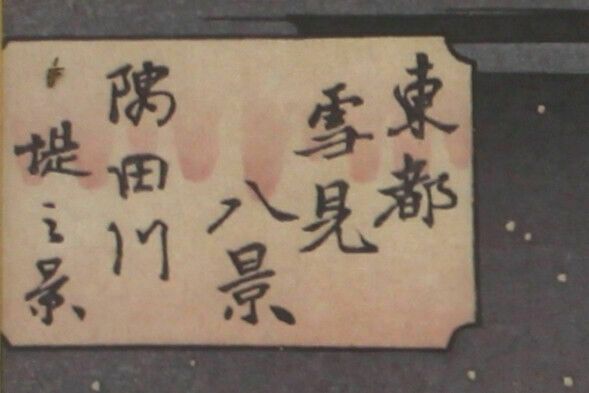 東都
雪見
八景
隅田川
堤之景